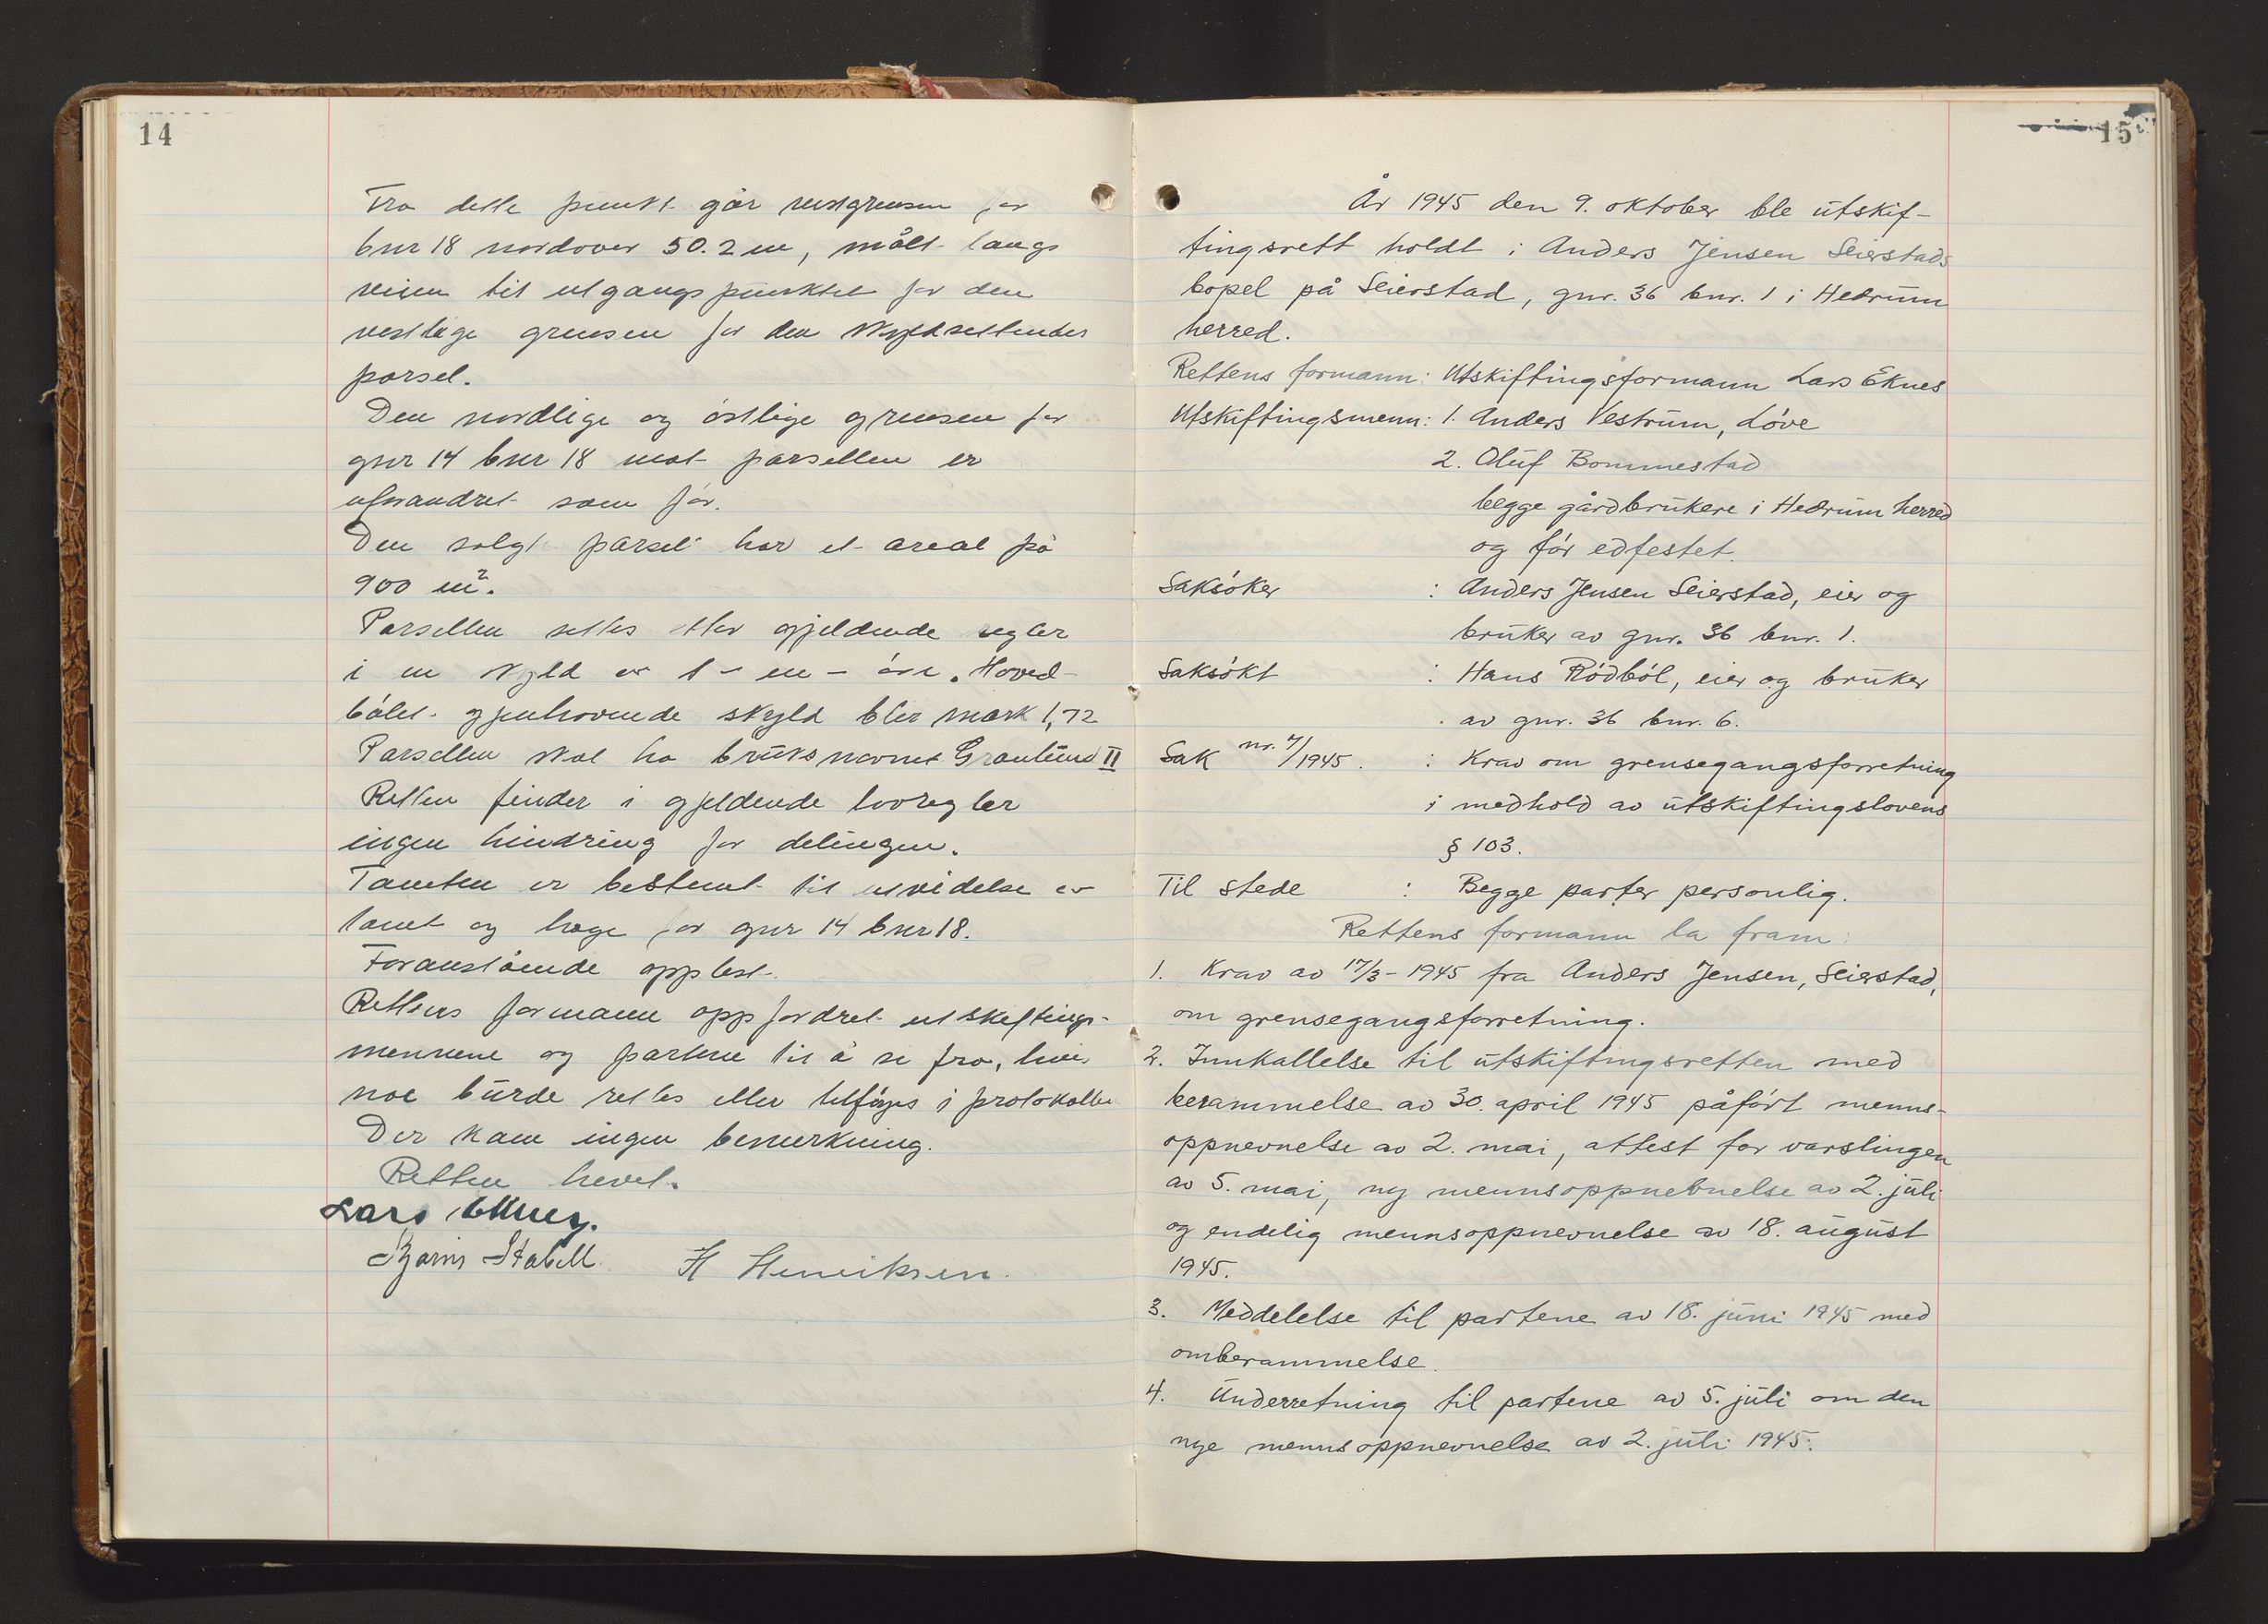 14
Fra dette punkt går vestgrensen for
bnr 18 nordover 50.2 m, målt langs
veien til utgangspunktet for den
vestlige grensen for den skyldsettendes
parsel.
Den nordlige og östlige grensen for
gnr 14 bnr 18 mot parsellen er
uforandret som för.
Den solgt parsel har et areal på
900 m².
Parsellen settes etter gjeldende regler
i en skyld av 1 - en - öre. Hoved-
bölets gjenhavende skyld blir mark 1,72
Parsellen skal ha bruksnavnet Granlund II
Retten finder i gjeldende lovregler
ingen hindring for delingen.
Tomten er bestemt til utvidelse av
tomt og hage for gnr 14 bnr 18.
Foranstående opplest.
Rettens formann oppfordret utskiftings-
mennene og partene til å si fra, hvis
noe burde rettes eller tilföyes i protokollen
Der kom ingen bemerkning.
Retten hevet.
Lars Eknes.
Bjarne Stabell. H Henriksen.
15
År 1945 den 9. oktober ble utskif-
tingsrett holdt i Anders Jensen Seierstads
bopel på Seierstad, gnr. 36 bnr. 1 i Hedrum
herred.
Rettens formann: Utskiftingsformann Lars Eknes
Utskiftingsmenn: 1. Anders Vestrum, Löve
2. Oluf Bommestad
begge gårdbrukere i Hedrum herred
og för edfestet.
Saksöker : Anders Jensen Seierstad, eier og
bruker av gnr. 36 bnr. 1.
Saksökt : Hans Rödböl, eier og bruker
av gnr. 36 bnr. 6.
Sak nr. 7/1945. : Krav om grensegangsforretning
i medhold av utskiftingslovens
§ 103.
Til stede : Begge parter personlig.
Rettens formann la fram:
1. Krav av 17/3 - 1945 fra Anders Jensen, Seierstad,
om grensegangsforretning.
2. Innkallelse til utskiftingsretten med
berammelse av 30. april 1945 påfört menns-
oppnevnelse av 2. mai, attest for varslingen
av 5. mai, ny mennsoppnevnelse av 2. juli
og endelig mennsoppnevnelse av 18. august
1945.
3. Meddelelse til partene av 18. juni 1945 med
omberammelse.
4. Underretning til partene av 5. juli om den
nye mennsoppnevnelse av 2. juli 1945.